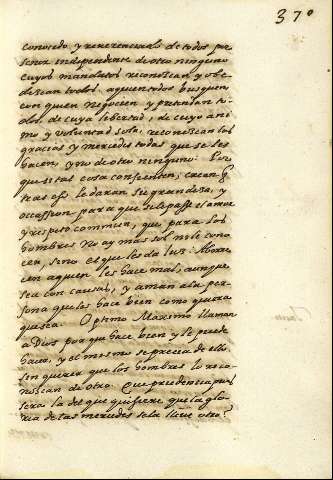 37º
conocido, y reverenciado de todos por
señor independente de otro ninguno
cuyos mandatos reconozcan y obe
dezcan todos, a quien todos busquen,
con quien negocien y pretendan to
dos, de cuya libertad, de cuyo ani
mo y voluntad sola, reconozcan las
gracias y mercedes todas que se les
hacen, y no de otro ninguno: Por
que si tal cosa consienten, crean q
tras ess le daran su grandeza, y
occassion para que se le passe el amor
y respeto comun, que para los
hombres no ay mas sol ni le cono
cen, sino el que les da luz: Aborre
cen a quien les hace mal, aunque
sea con causas, y aman a la per
sona que les hace bien como quiera
que sea. Optimo Maximo llaman
a Dios por que hace bien y le puede
hacer, y el mismo se precia de ello
sin querer que los hombres lo reco
noscan de otro. Que prudencia pues
sera la del que quisiere que la glo
ria de las mercedes se la lleve otro?